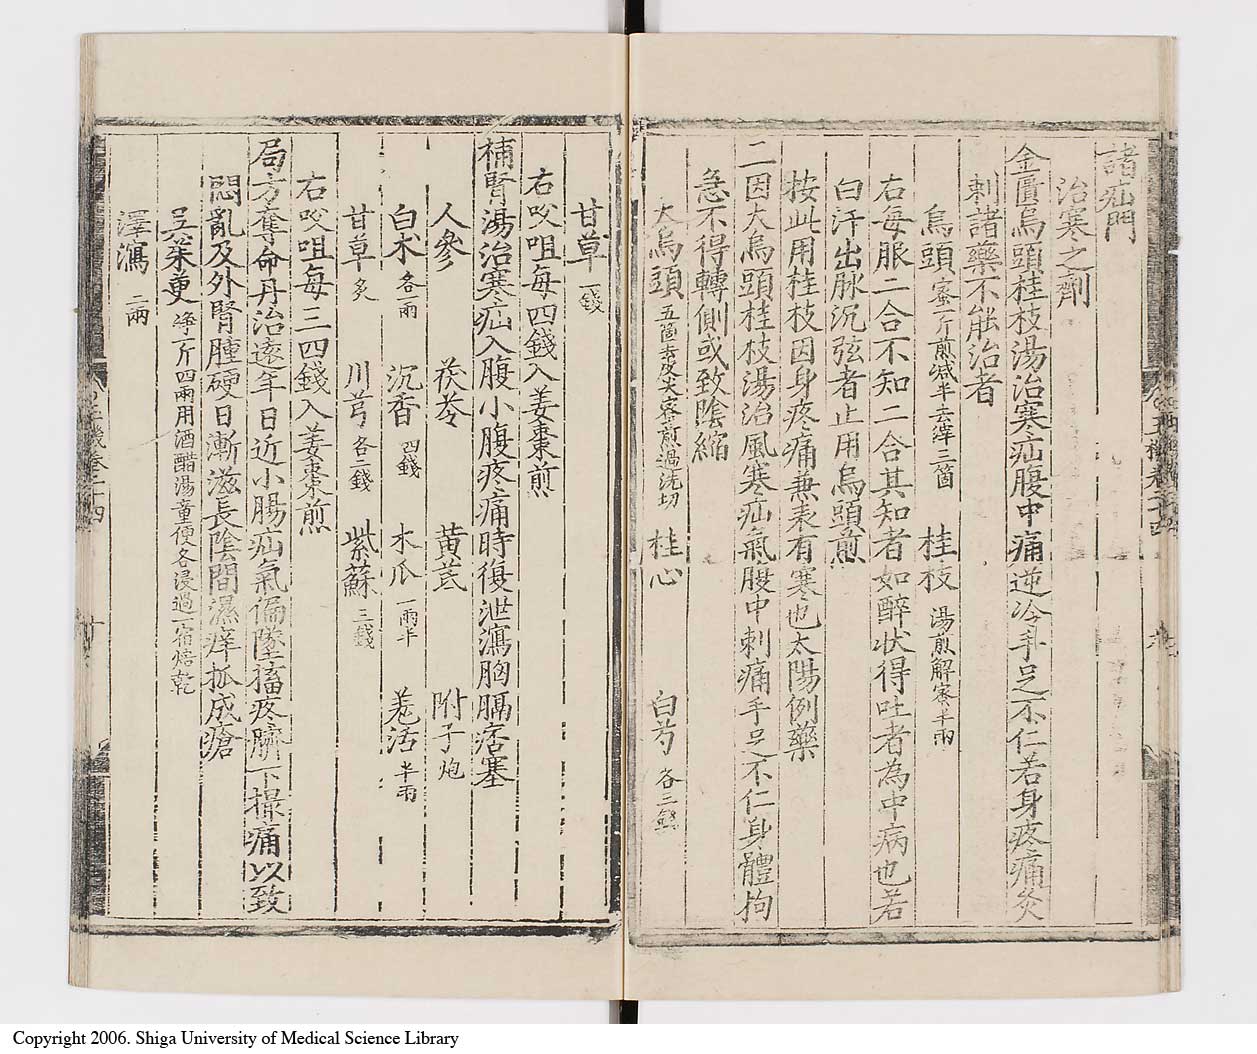 諸疝門
治寒之劑
金匱烏頭桂枝湯治寒疝腹中痛逆冷手足不仁若身疼痛灸
刺諸藥不能治者
烏頭 蜜一斤煎減半去滓三箇 桂枝 湯煎解蜜半兩
右每服二合不知二合其知者如醉状得吐者為中病也若
白汗出脉沉弦者止用烏頭煎
按此用桂枝因身疼痛兼表有寒也太陽例藥
三因大烏頭桂枝湯治風寒疝氣腹中刺痛手足不仁身體拘
急不得轉側或致陰縮
大烏頭 五箇去皮尖蜜煎過洗切 桂心 白芍 各三錢
甘草 一錢
右㕮咀每四錢入姜棗煎
補腎湯治寒疝入腹小腹疼痛時復泄瀉胸膈痞塞
人參 茯苓 黄芪 附子 炮
白朮 各一兩 沉香 四錢 木瓜 一兩半 羗活 半兩
甘草 炙 川芎 各二錢 紫蘇 三錢
右㕮咀每三四錢入姜棗煎
局方奪命丹治遠年日近小腸疝氣偏墜搐疼臍下撮痛以致
悶亂及外腎腫硬日漸滋長陰間濕痒抓成瘡
吴茱萸 净一斤四兩用酒醋湯童便各浸過一宿焙乾
澤瀉 二兩
Copyright 2006. Shiga University of Medical Science Library